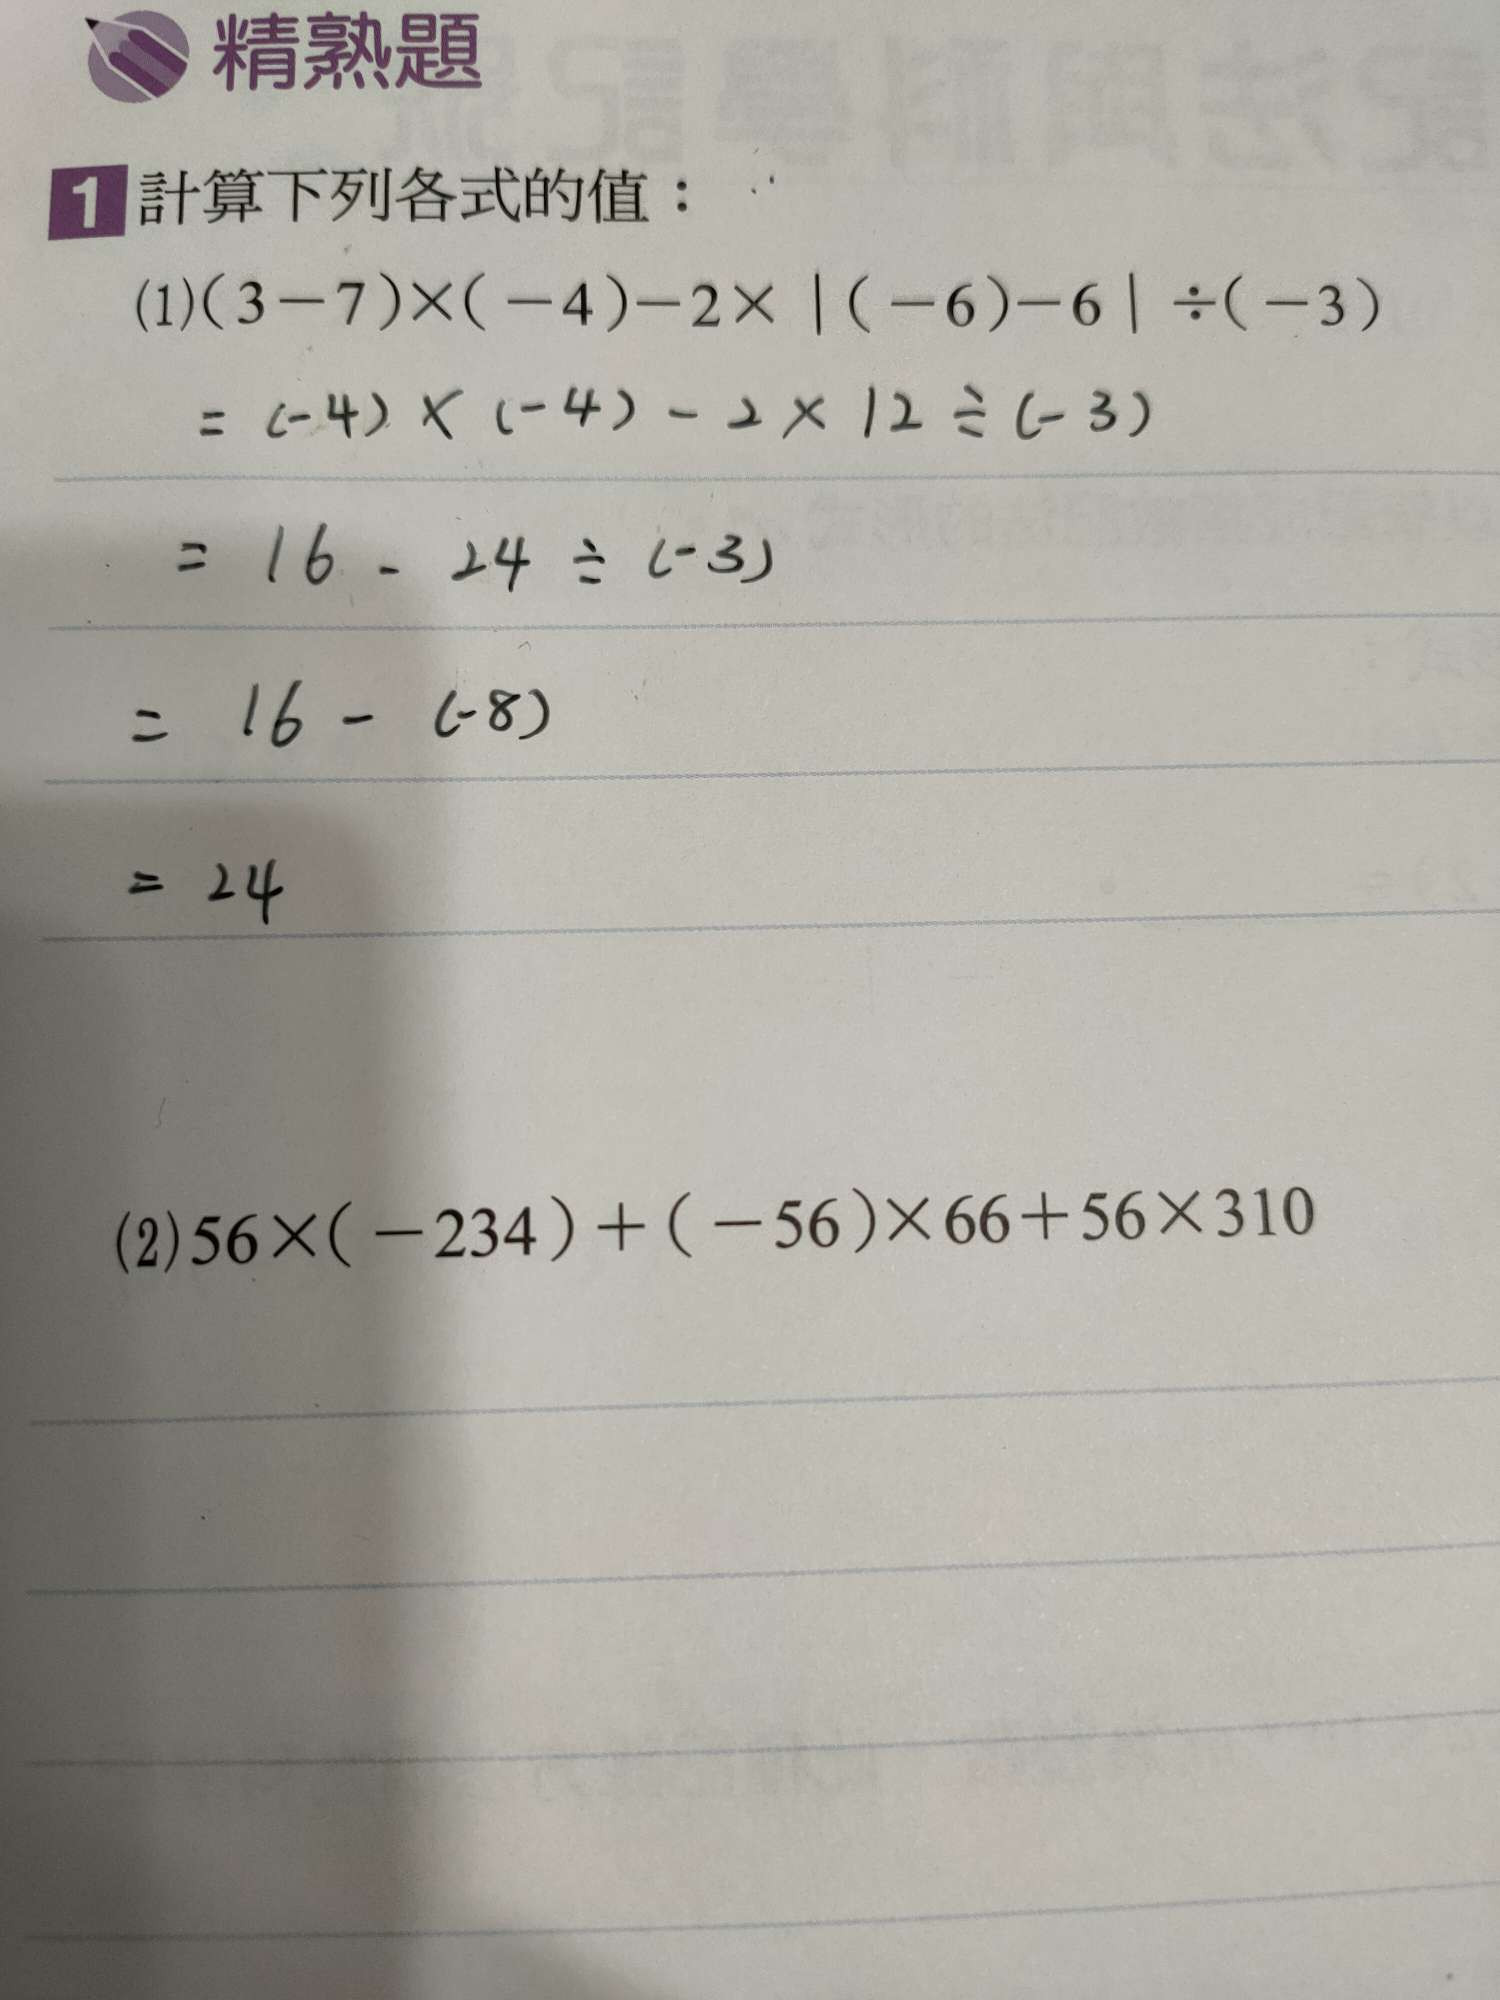 精熟題
1 計算下列各式的值：
(1)(3－7)×(－4)－2×|(－6)－6|÷(－3)
= (-4) × (-4) - 2 × 12 ÷ (-3)
= 16 - 24 ÷ (-3)
= 16 - (-8)
= 24
(2)56×(－234)＋(－56)×66＋56×310